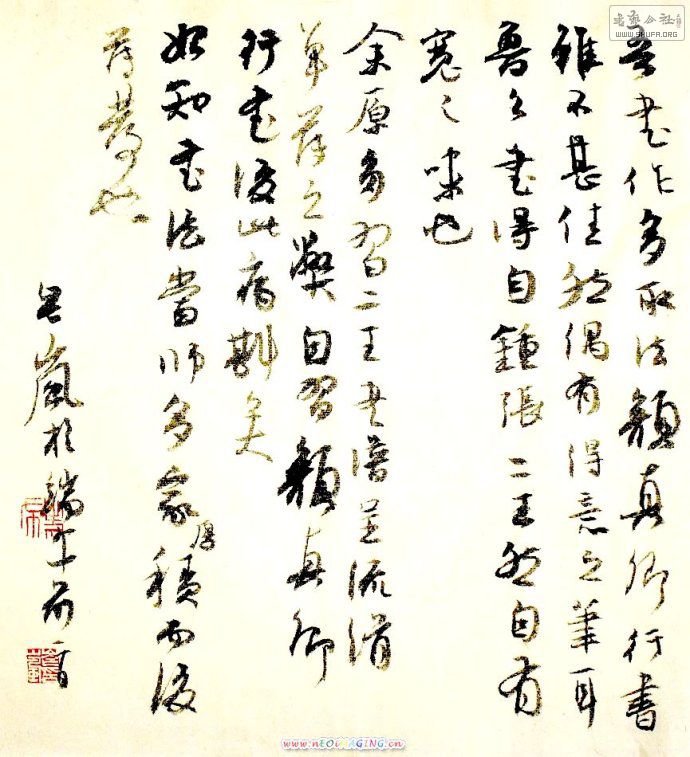 吾書作多取法顏真卿行書
雖不甚佳然偶有得意之筆耳
魯公書得自鍾張二王然自有
寬味也
余原多習二王書譜流滑
單薄之弊自習顏真卿
行書後此病矣
始知書法當師多家厚積而後
薄發也
嵐於端午前一日
WWW.SHUFA.ORG
www.nEOiMAGING.cn